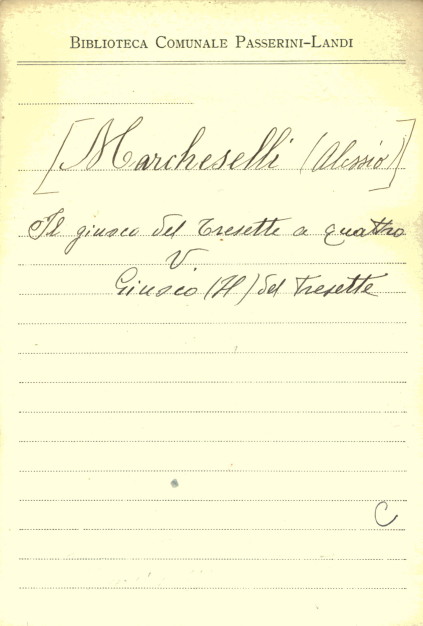 BIBLIOTECA COMUNALE PASSERINI-LANDI
[Marcheselli (Alessio)]
Il giuoco del tresette a quattro
V
Giuoco (Il) del tresette
C